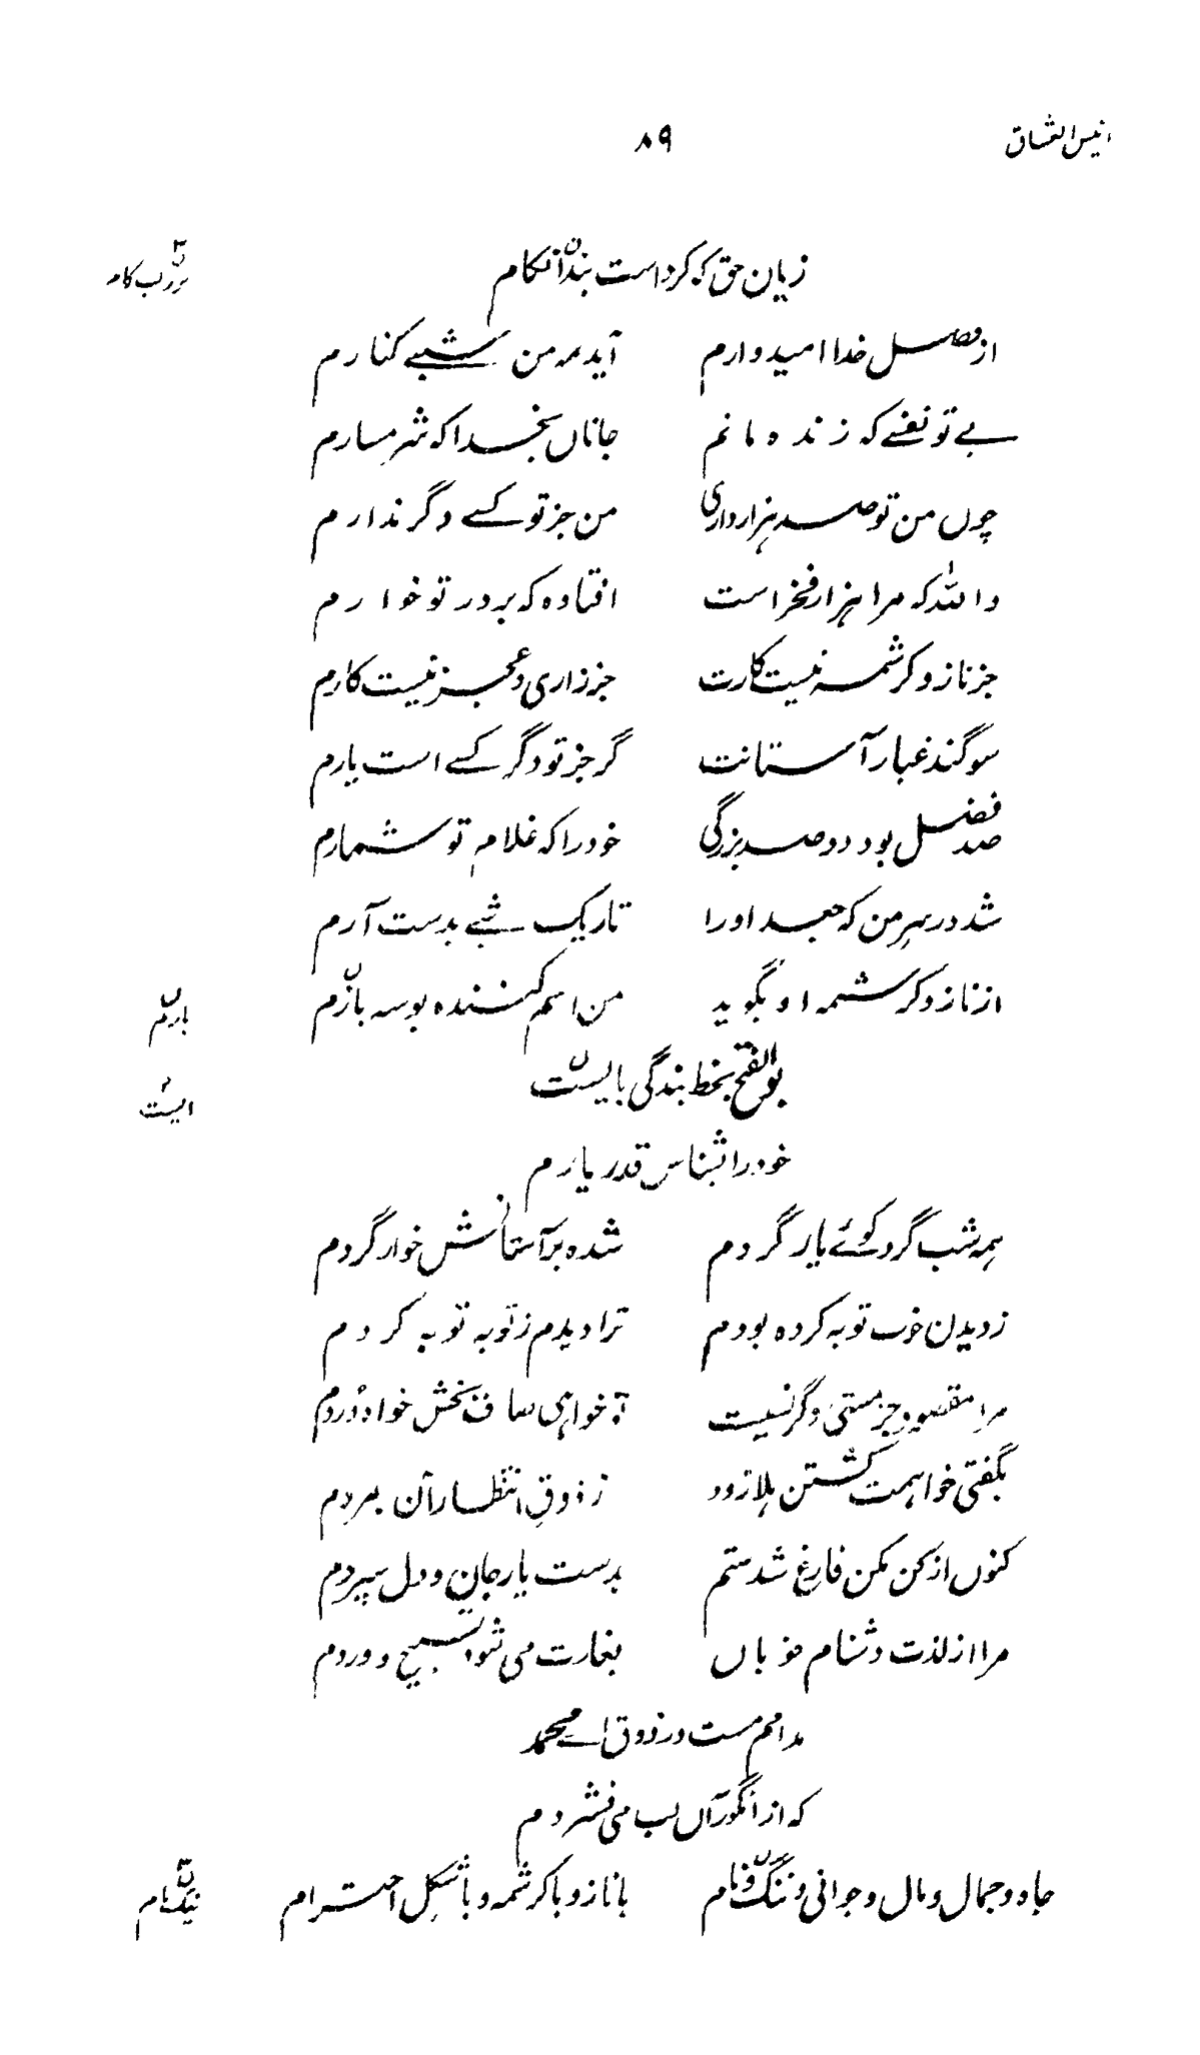 انیس العشاق
۸۹
زیان حق که کرد است بند آنکام
از فضل خدا امیدوارم آید مہ من شبے کنارم
بے تو نفسے کہ زندہ مانم جاناں بخدا کہ شرمسارم
چوں من تو صد ہزار داری من جز تو کسے دگر ندارم
واللہ کہ مرا ہزار فخر است افتادہ کہ بر در تو خوارم
جز ناز و کرشمہ نیست کارت جز زاری و عجز نیست کارم
سوگند غبار آستانت گر جز تو دگر کسے است یارم
صد فضل بود دو صد بزرگی خود را کہ غلام تو شمارم
شد در سر من کہ جعد او را تاریک شبے بدست آرم
از ناز و کرشمہ او بگوید من اسم کنندہ بوسہ بازم
بازیم
بوالفتح بخط بندگی بایست
ایست
خود را بشناس قدر یارم
ہمہ شب گرد کوئے یار گردم شدہ بر آستانش خوار گردم
ز دیدن خوب توبہ کردہ بودم ترا دیدم ز توبہ توبہ کردم
مرا مقصود جز مستی دگر نیست تو خواہی صاف بخش خواہ دردم
بگفتی خواہمت کشتن ہلا زود ز ذوق انتظار آن بمردم
کنوں از کن مکن فارغ شدستم بدست یار جان و دل سپردم
مرا از لذت دشنام خوباں بغارت می شود تسبیح و وردم
مدامم مست در ذوق اے محمد
کہ از انگور آں لب می فشردم
جاہ و جمال و مال و جوانی و ننگ و نام با ناز و با کرشمہ و با شکل احترام
نیکنام